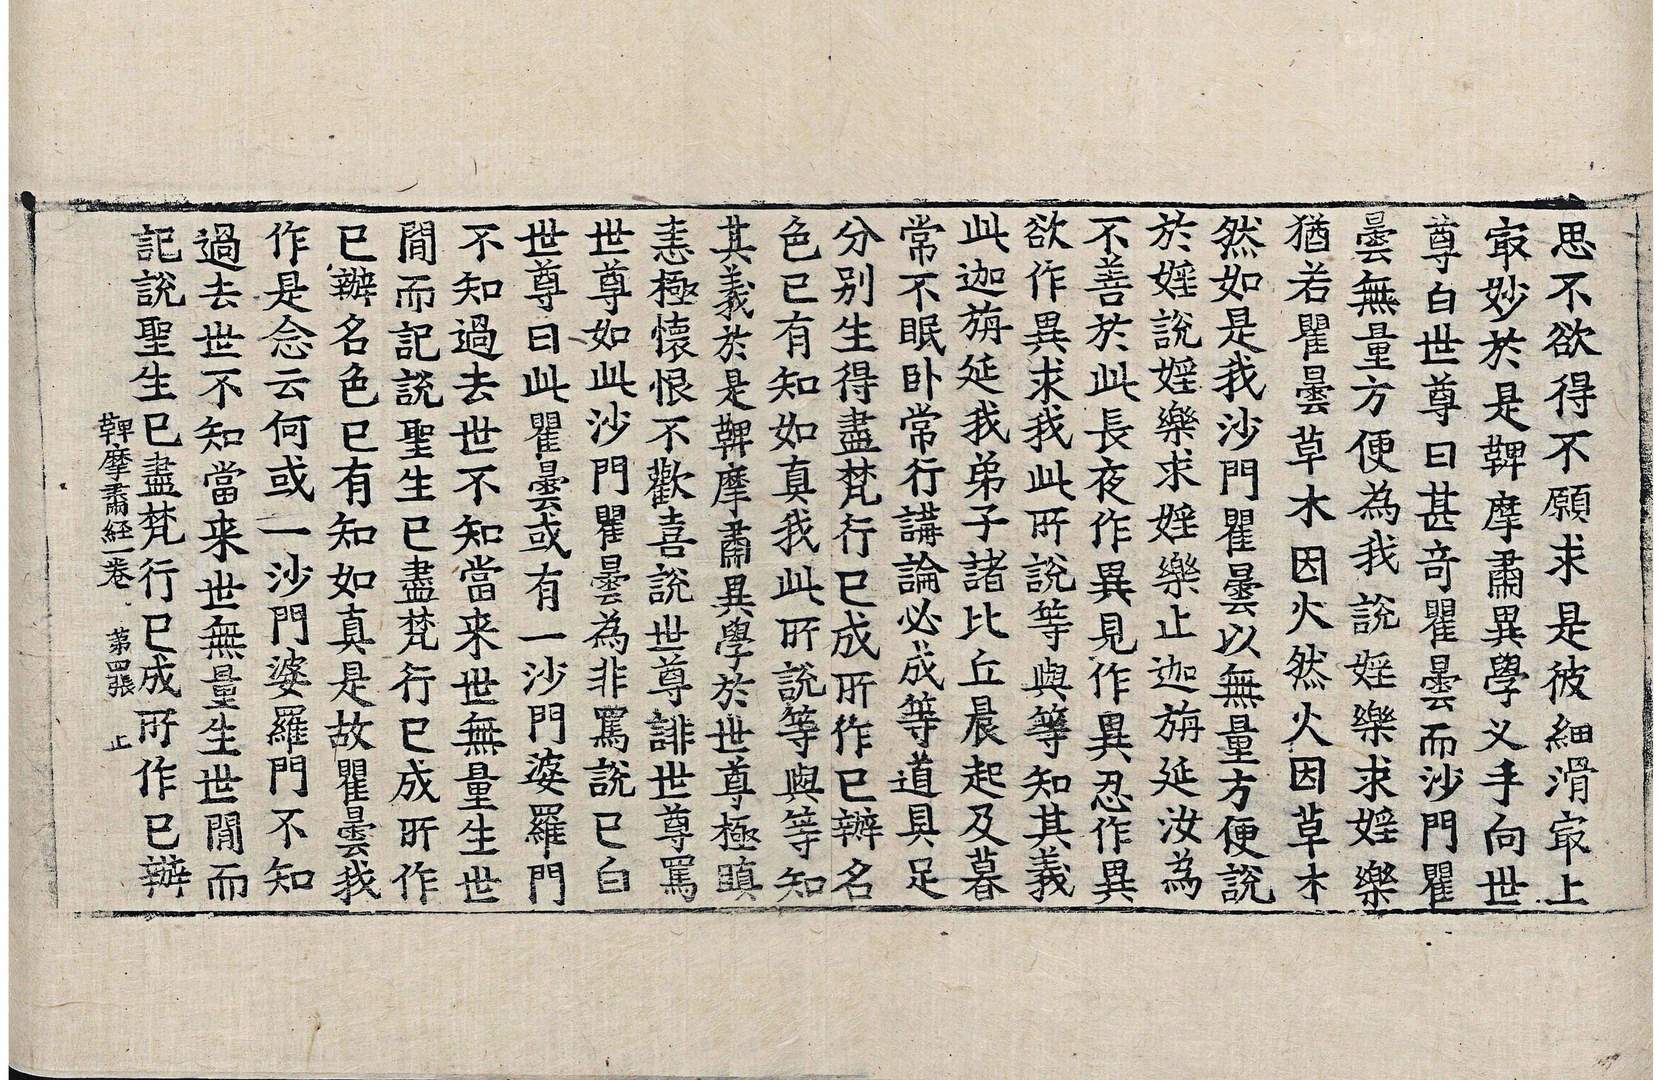 思不欲得不願求是彼細滑㝡上
㝡妙於是鞞摩肅異學义手向世
尊白世尊曰甚竒瞿曇而沙門瞿
曇無量方便為我說婬樂求婬樂
猶若瞿曇草木因火然火因草木
然如是我沙門瞿曇以無量方便說
於婬說婬樂求婬樂止迦旃延汝為
不善於此長夜作異見作異忍作異
欲作異求我此所說等與等知其義
此迦旃延我弟子諸比丘晨起及暮
常不眠卧常行講論必成等道具足
分别生得盡梵行已成所作已辦名
色已有知如真我此所說等與等知
其義於是鞞摩肅異學於世尊極瞋
恚極懷恨不歡喜說世尊誹世尊罵
世尊如此沙門瞿曇為非罵說已白
世尊曰此瞿曇或有一沙門婆羅門
不知過去世不知當来世無量生世
間而記說聖生已盡梵行已成所作
已辦名色已有知如真是故瞿曇我
作是念云何或一沙門婆羅門不知
過去世不知當来世無量生世間而
記說聖生已盡梵行已成所作已辦
鞞摩肅經一卷 第四張 止